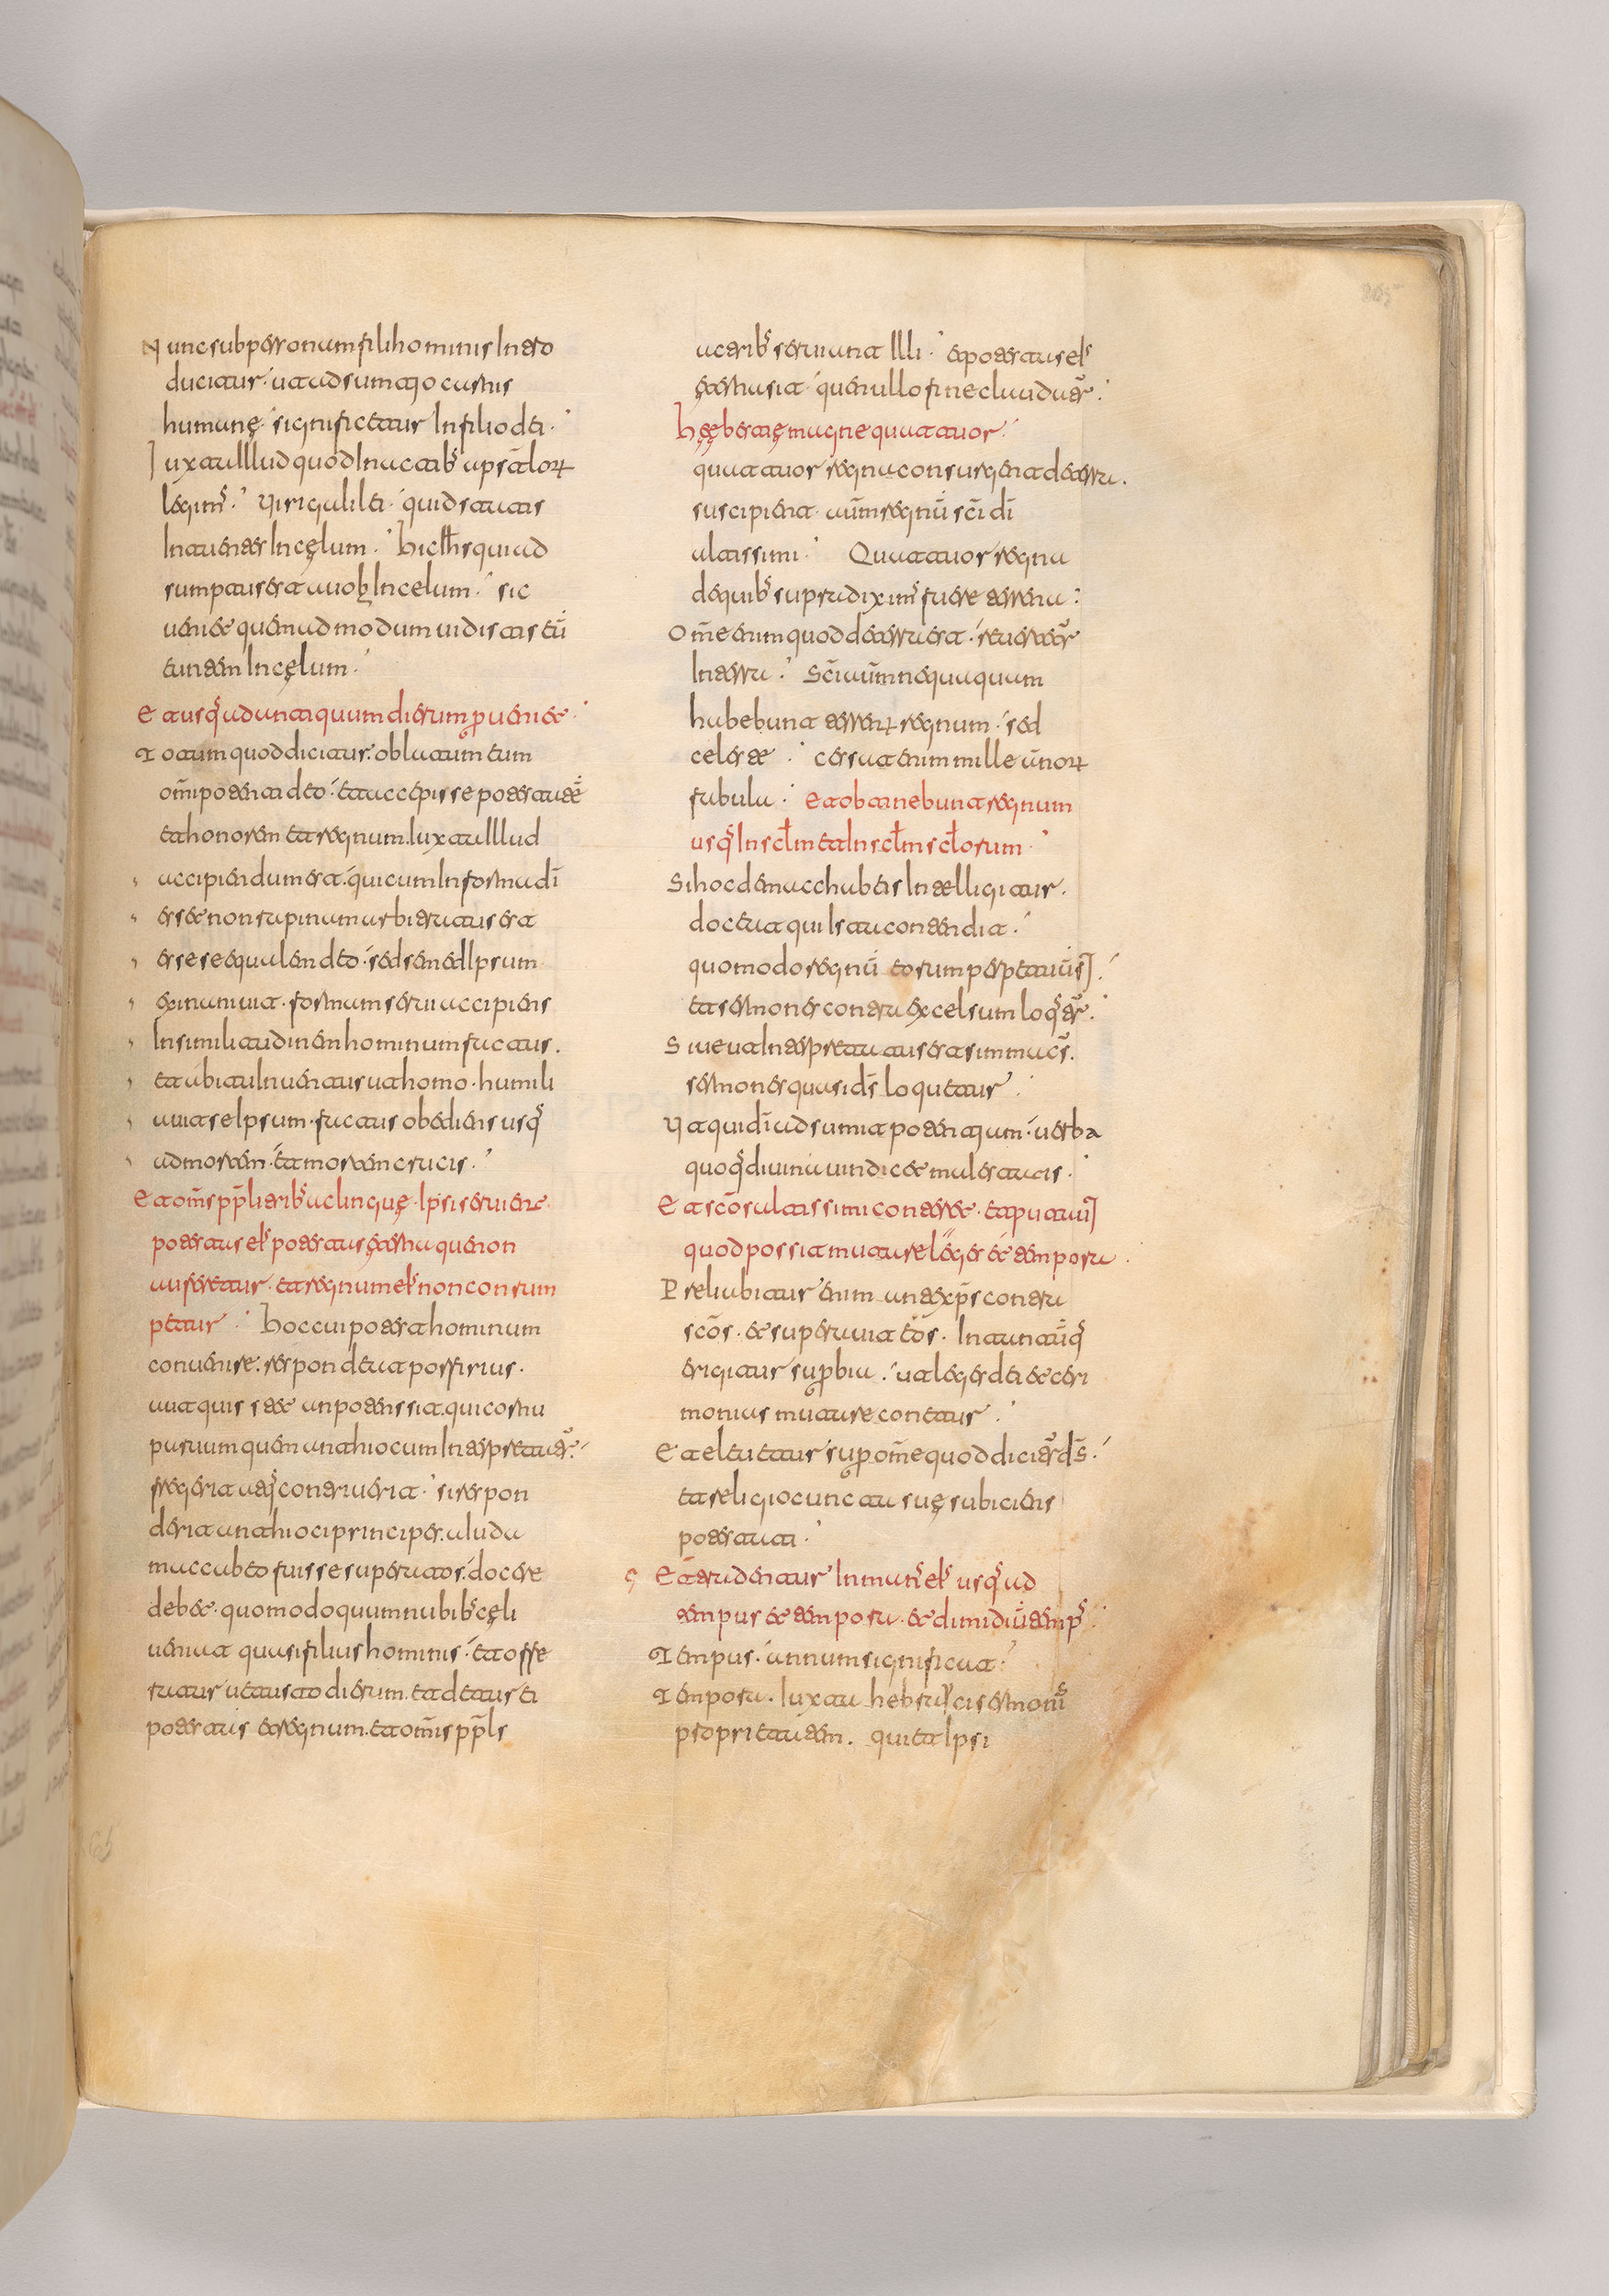 Nunc sub personam filii hominis Intro
ducitur. ut adsumtio carnis
humanę. significetur In filio dei.
Iuxta Illud quod In actibꝰ apstãlorꝝ
legimꝰ. Viri galilei. quid statis
Intuentes In cęlum. hic ihs qui ad
sumptus est a uob In celum. sic
ueniet quemadmodum uidistis eũ
euntem In cęlum.
Et usqꝰ ad untiquum dierum perueniet.
Totum quod dicitur. oblatum eum
om̃ipotenti deo. et accepisse potestatẽ
et honorem et regnum. Iuxta Illud
accipiendum est. qui cum In forma dĩ
esset non rapinam arbitratus est
esse se equalem deo. sed semed Ipsum
exinaniuit. formam serui accipiens
In similitudinem hominum factus.
et abitu Inuentus ut homo. humili
auit se Ipsum. factus obediens usqꝰ
ad mortem. et mortem crucis.
Et om̃s pp̃li tribꝰ ac linguę. Ipsi seruient.
potestas eiꝰ potestas ęterna que non
auferetur. et regnum eiꝰ non conrum
petur. hoc cui poterat hominum
conuenire. respondeat porfirius.
aut quis iste tan potens sit. qui cornu
paruum quem antiocum Interpretatur.
fregerit atqꝰ contriuerit. si respon
derit antioci principes. a iuda
maccabeo fuisse superatos. docere
debet. quomodo quum nubibꝰ cęli
ueniat quasi filius hominis. et offe
ratur uetusto dierum. et detur ei
potestas et regnum. et om̃is pp̃ls
ac tribꝰ seruiant Illi. et potestas eiꝰ
ęterna sit. que nullo fine claudatur.
hęę bestię magne quattuor.
quattuor regna consurgent de terra.
suscipient autm̃ regnũ scĩ dĩ
altissimi. Quattuor regna
de quibꝰ supra diximꝰ fuere terrena.
Om̃e enim quod de terra est. reuertetur
In terra. Scĩ autm̃ nequaquam
habebunt terrenꝝ regnum. sed
celeste. cesset enim mille annorꝝ
fabula. et obtinebunt regnum
usqꝰ In sclm et In sclm sclorum
Si hoc de maccabeis Intelligitur.
doceat qui Ista contendit.
quomodo regnũ eorum perpetuũ sit.
et sermones contra excelsum loqꝰtur.
Siue ut Interpretatus est simmacꝰ.
sermones quasi dš loquetur.
Ut qui dĩ adsumit potentium. uerba
quoqꝰ diuina uindicet maiestatis.
Et scõs altissimi conteret. et putauit
quod possit mutare leges et tempora
Preliabitur enim antexps contra
scõs. et superauit eos. In tantũqꝰ
erigitur superbia. ut leges dei et ceri
monias mutare conetur.
Et eleuetur super om̃e quod dicitur dš.
et religio cuncta suę subiciens
potestati.
Et tradentur In manꝰ eiꝰ usqꝰ ad
tempus et tempora. et dimidiũ tempꝰ
Tempus. annum significat.
Tempora. Iuxta hebraici sermonis
proprietatem. qui et Ipsi